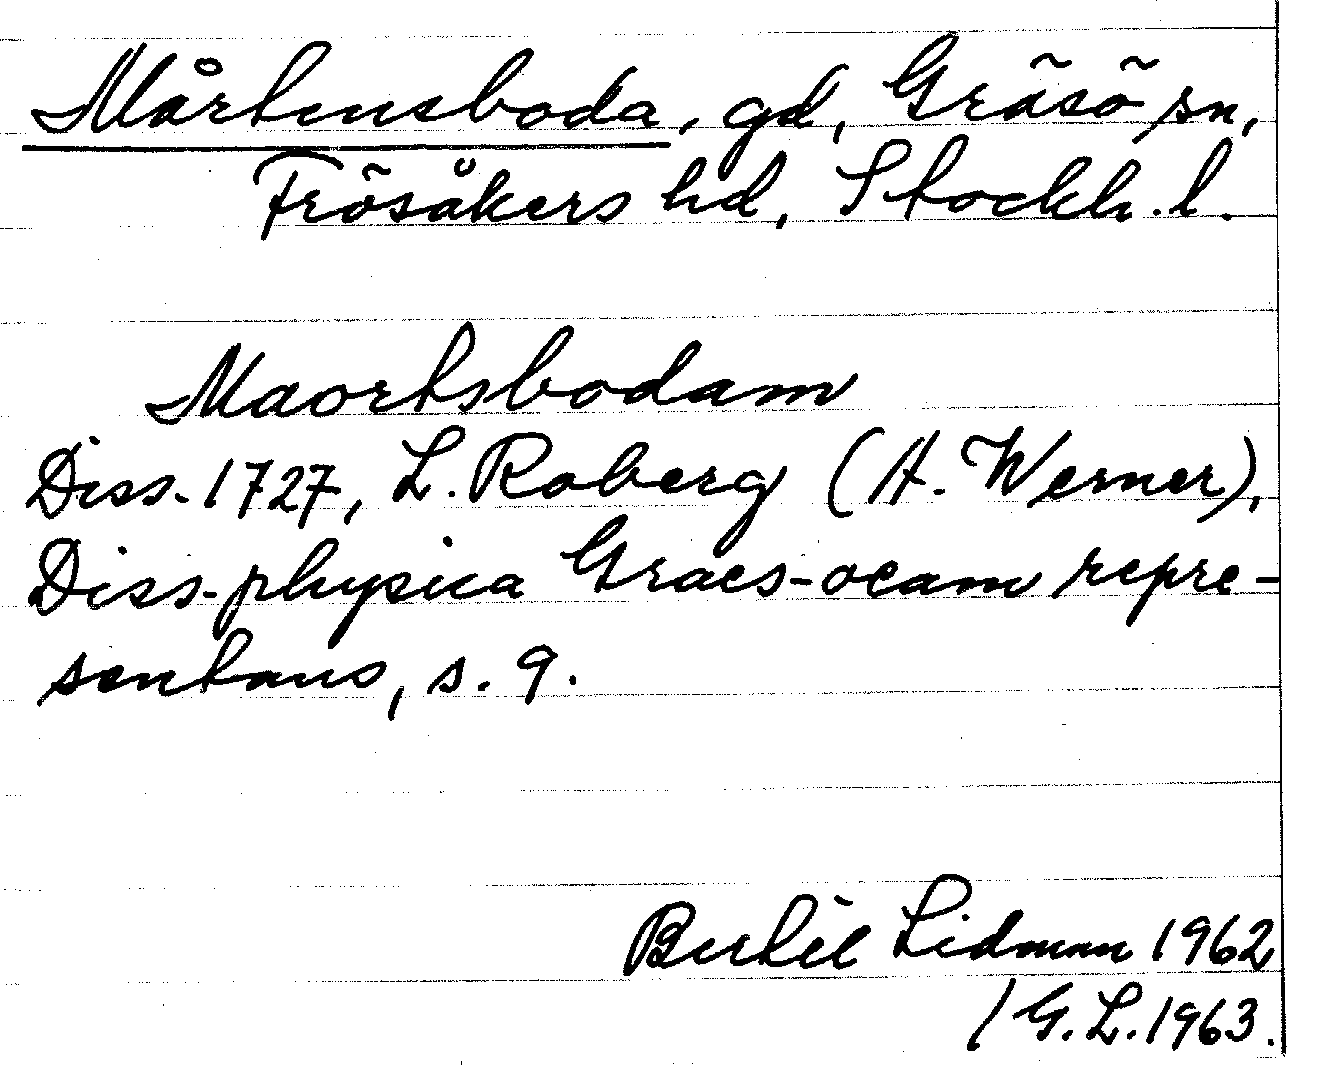 Mårtensboda, gd, Gräsö sn,
Frösåkers hd, Stockh. l.
Maortsbodam
Diss. 1727, L. Roberg (A. Werner),
Diss. physica Graes-oeam repre-
sentans, s. 9.
Bertil Lidman 1962
/ G. L. 1963.